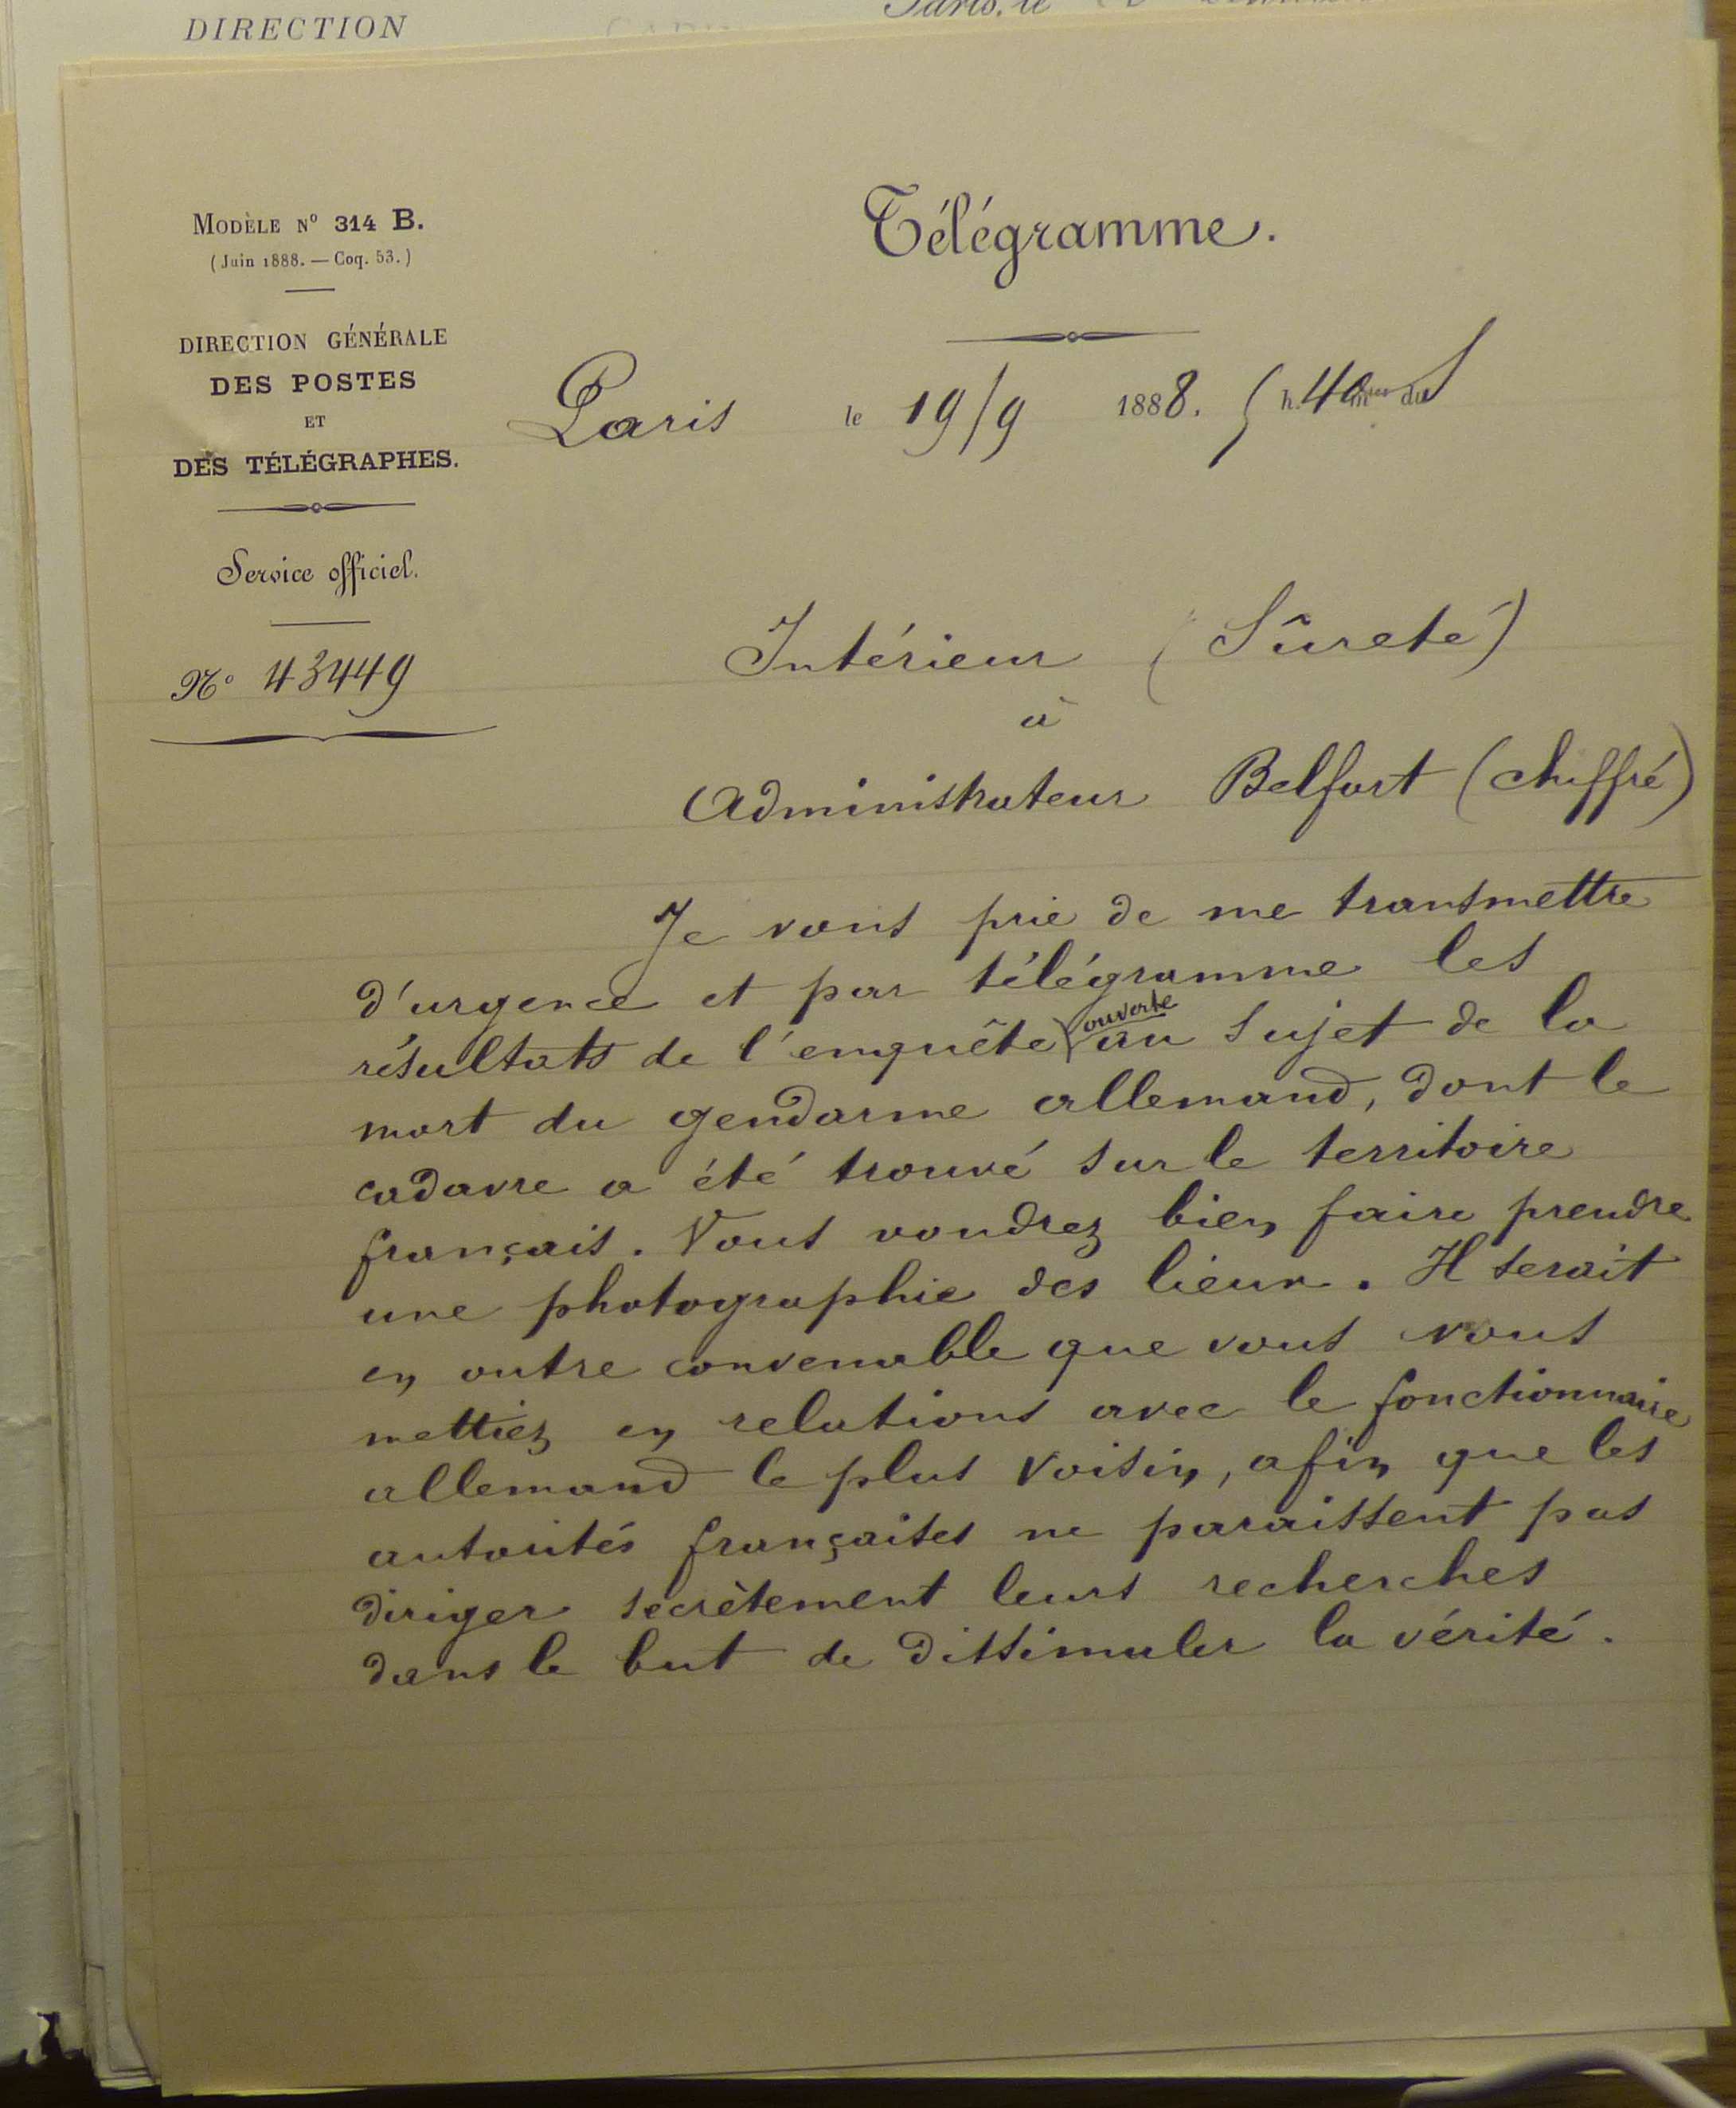 DIRECTION
Paris, le
MODÈLE N° 314 B.
(Juin 1888. — Coq. 53.)
DIRECTION GÉNÉRALE
DES POSTES
ET
DES TÉLÉGRAPHES.
Service officiel.
N° 43449
Télégramme.
Paris le 19/9 1888. 5 h. 40 m du S
Intérieur (Sûreté)
à
Administrateur Belfort (chiffré)
Je vous prie de me transmettre
d'urgence et par télégramme les
résultats de l'enquête ouverte au sujet de la
mort du gendarme allemand, dont le
cadavre a été trouvé sur le territoire
français. Vous voudrez bien faire prendre
une photographie des lieux. Il serait
en outre convenable que vous vous
mettiez en relations avec le fonctionnaire
allemand le plus voisin, afin que les
autorités françaises ne paraissent pas
diriger secrètement leurs recherches
dans le but de dissimuler la vérité.